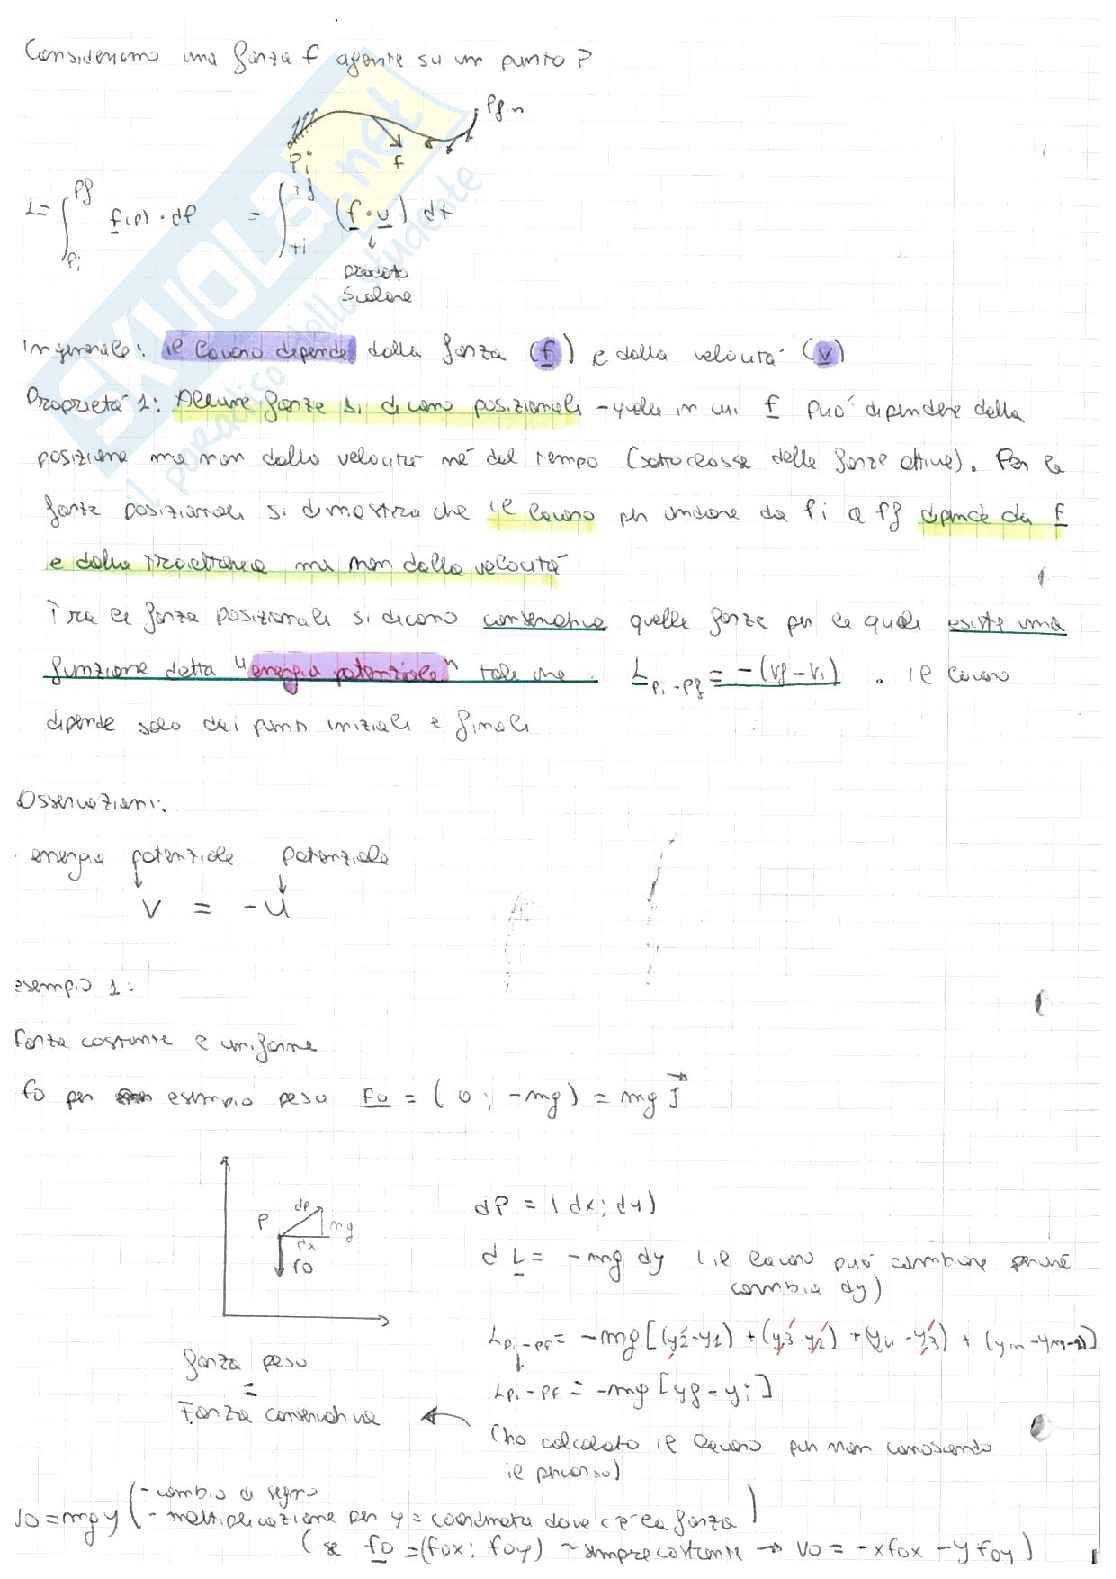 Consideriamo una forza f agente su un punto P
Pfin
Pi
f
L = ∫ Pf Pi f(P) · dP = ∫ tf ti (f · v) dt
prodotto
scalare
In generale: il lavoro depende dalla forza (f) e dalla velocità (v)
Proprietà 1: Alcune forze si dicono posizionali - quelle in cui f può dipendere della
posizione ma non dalla velocità né dal tempo (sottoclasse delle forze attive). Per le
forze posizionali si dimostra che il lavoro per andare da Pi a Pf dipende da f
e dalla traiettoria ma non dalla velocità
Tra le forze posizionali si dicono conservative quelle forze per le quali esiste una
funzione detta "energia potenziale" tale che: L Pi-Pf = -(Vf - Vi) . il lavoro
dipende solo dai punti iniziali e finali
Osservazioni:
energia potenziale potenziale
V = -U
esempio 1:
Forza costante e uniforme
f0 per esempio peso F0 = (0; -mg) = mg J
P
dP
mg
dx
f0
dP = (dx; dy)
dL = -mg dy (il lavoro può cambiare perché
cambia dy)
L Pi-Pf = -mg [(y2-y1) + (y3-y2) + (y4-y3) + (yn-yn-1)]
L Pi-Pf = -mg [yf - yi]
forza peso
=
Forza conservativa
(ho calcolato il lavoro pur non conoscendo
il percorso)
V0 = mgy (- cambio di segno
- moltiplicazione per y = coordinata dove c'è la forza)
(se f0 = (f0x; f0y) ~ sempre costante → V0 = -x f0x - y f0y)
SKUOLA.net
il paradiso dello studente